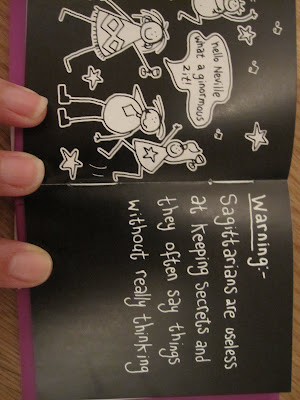 Hello Neville
what a ginormous
zit!
Warning:-
Sagittarians are useless
at keeping secrets and
they often say things
without really thinking